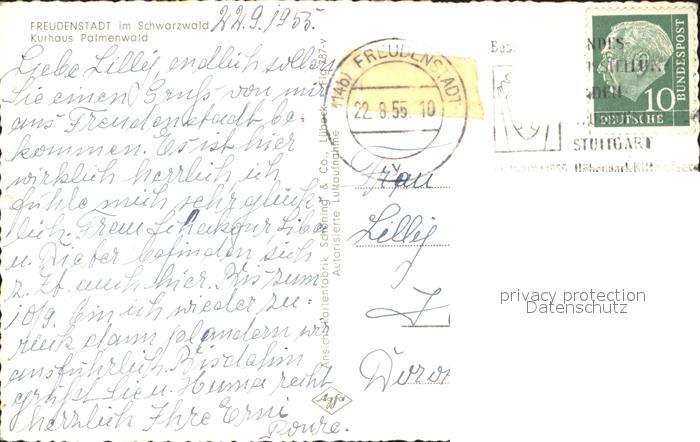 FREUDENSTADT im Schwarzwald
Kurhaus Palmenwald
22.9.1955.
Liebe Lilly endlich sollen
Sie einen Gruß von mir
aus Freudenstadt be-
kommen. Es ist hier
wirklich herrlich ich
fühle mich sehr glück-
lich. Frau
u. befinden sich
z. Zt. auch hier. Bis zum
10/9. bin ich wieder zu-
rück dann plaudern wir
ausführlich. Bis dahin
grüßt Sie u. recht
herzlich Ihre Erni
Ansichtskartenfabrik Schöning & Co., Lübeck
Autorisierte Luftaufnahme
Agfa
(14b) FREUDENSTADT
22.8.55. 10
Frau
Lilly
DEUTSCHE
BUNDESPOST
10
STUTTGART
1955 Höhenpark Killesberg
privacy protection
Datenschutz